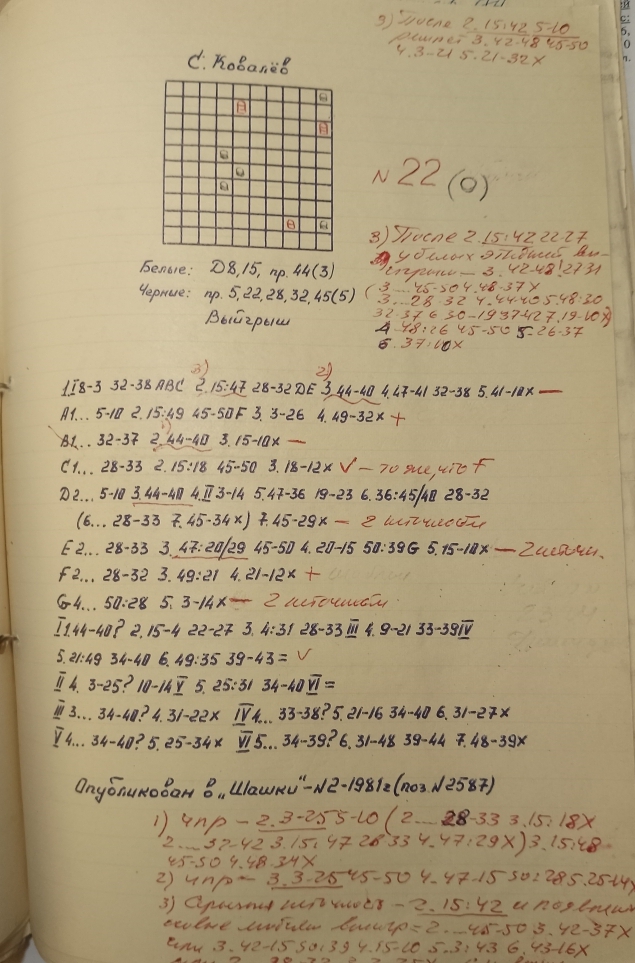 3) После 2.15:42 5-10
решает 3.42-48 45-50
4.3-21 5.21-32x
С. Ковалёв
N 22 (0)
3) После 2.15:42 22-27
у белых
3.42-48! 27 31
(3... 45-50 4.48-37X
3... 28-32 4.44-40 5.48-30
32-37 6 30-19 37-42 7.19-10x)
4.48:26 45-50 5.26-37
6.37:10x
Белые: Д8,15, пр. 44(3)
Чёрные: пр. 5,22,28,32,45(5)
Выигрыш
3) 2)
1.I8-3 32-38 ABC 2.15:47 28-32 DE 3.44-40 4.47-41 32-38 5.41-10x —
A1... 5-10 2.15:49 45-50F 3.3-26 4.49-32x +
1)
B1... 32-37 2.44-40 3.15-10x —
C1... 28-33 2.15:18 45-50 3.18-12x √ – то же, что F
D2... 5-10 3.44-40 4.II 3-14 5.47-36 19-23 6.36:45/40 28-32
(6... 28-33 7.45-34x) 7.45-29x — 2 неточности
E2... 28-33 3.47:20/29 45-50 4.20-15 50:39G 5.15-10x — 2 неточн.
F2... 28-32 3.49:21 4.21-12x +
G4... 50:28 5.3-14x — 2 неточности
I 1.44-40? 2.15-4 22-27 3.4:31 28-33 III 4.9-21 33-39 IV
5.21:49 34-40 6.49:35 39-43= √
II 4.3-25? 10-14 V 5.25:31 34-40 VI =
III 3... 34-40? 4.31-22x IV 4... 33-38? 5.21-16 34-40 6.31-27x
V 4... 34-40? 5.25-34x VI 5... 34-39? 6.31-48 39-44 7.48-39x
Опубликован в „Шашки"-N2-1981г (поз. N2587)
1) ЧПР – 2.3-25 5-10 (2... 28-33 3.15:18X
2... 37-42 3.15:47 28 33 4.47:29X) 3.15:48
45-50 4.48-34X
2) ЧПР – 3.3-25 45-50 4.47-15 50:28 5.25-14x
3) неточность – 2.15:42 и
2... 45-50 3.42-37X
или 3.42-15 50:39 4.15-10 5.3:43 6.43-16X